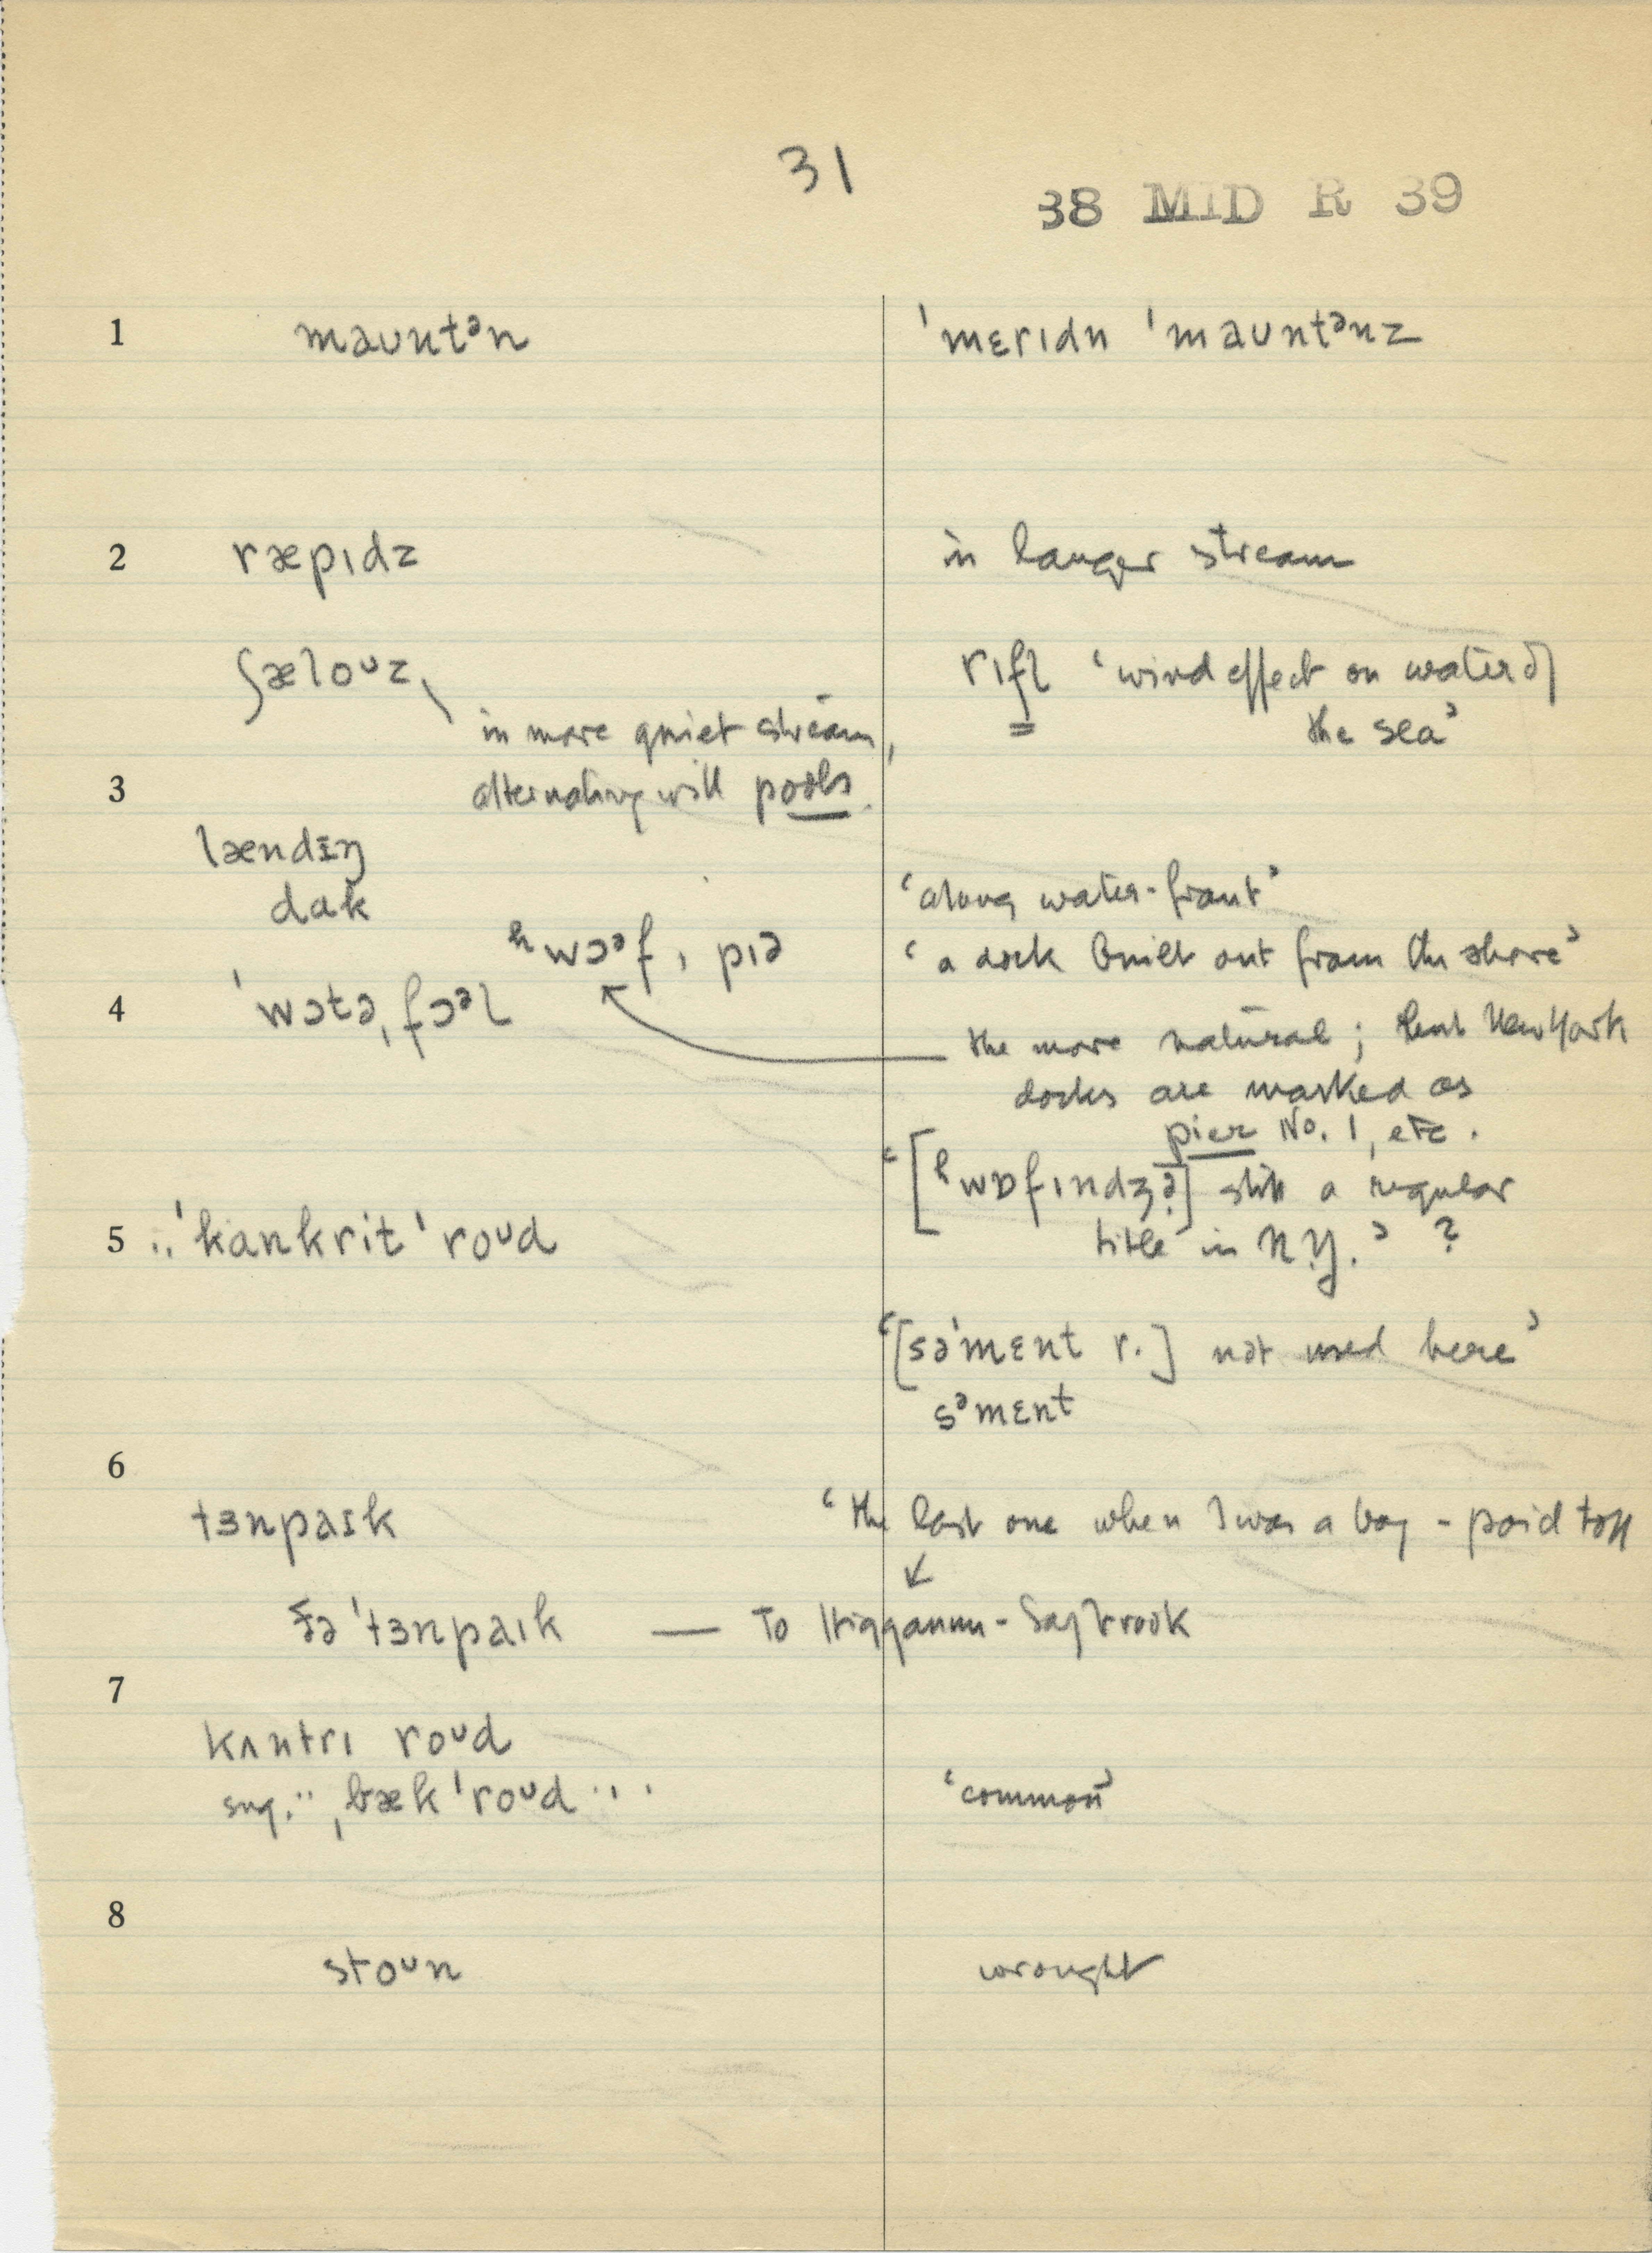 31
38 MID R 39
1 maʊntᵊn ˈmɛrɪdn ˈmaʊntᵊnz
2 ræpɪdz in larger stream
ʃæloᵘz, rɪfl̩ ‘wind effect on water of
in more quiet stream, the sea’
3 alternating with pools.
lændɪŋ
dak ‘along water-front’
ʰwɔᵊf, pɪə ‘a dock built out from the shore’
4 ˈwɔtəˌfɔᵊl the more natural; but New York
docks are marked as
pier No. 1, etc.
‘[ʰwɒfɪndʒə] still a regular
5 ..ˈkankritˈroᵘd title in N.Y.’ ?
‘[səˈmɛnt r.] not used here’
sᵊmɛnt
6
tɜnpaɪk ‘the last one when I was a boy - paid toll
ðə ˈtɜnpaɪk — To Higganum - Saybrook
7
kʌntrɪ roᵘd
sug. .. ˌbækˈroᵘd ... ‘common’
8
stoᵘn wrought